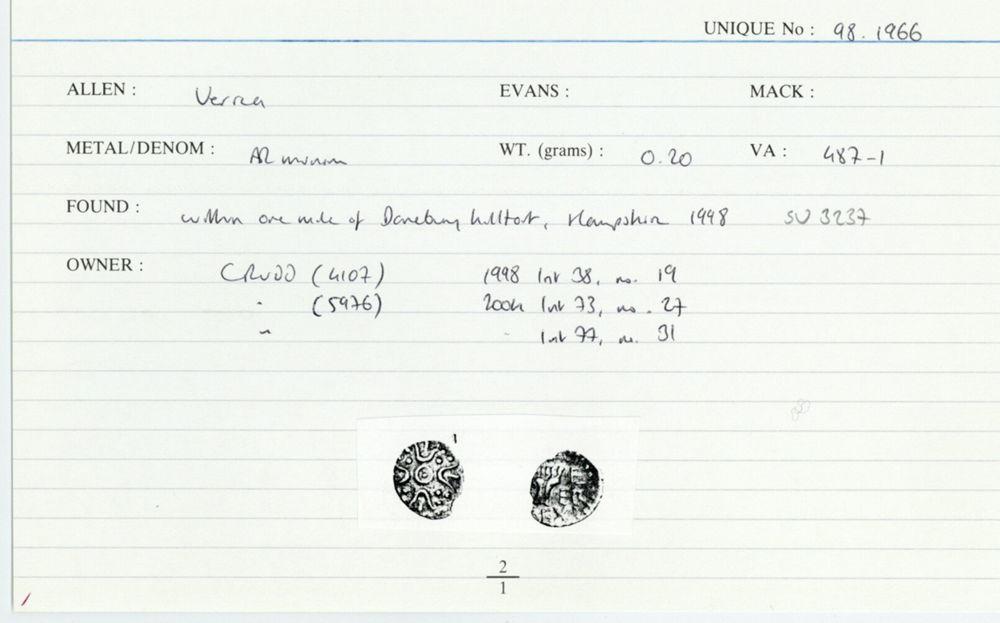 UNIQUE No : 98.1966
ALLEN : Verica EVANS : MACK :
METAL/DENOM : AR minim WT. (grams) : 0.20 VA : 487-1
FOUND : within one mile of Danebury hillfort, Hampshire 1998 SU 3237
OWNER : CRUDD (4107) 1998 List 38, no. 19
" (5976) 2004 List 73, no. 27
" " List 77, no. 31
1
2
1